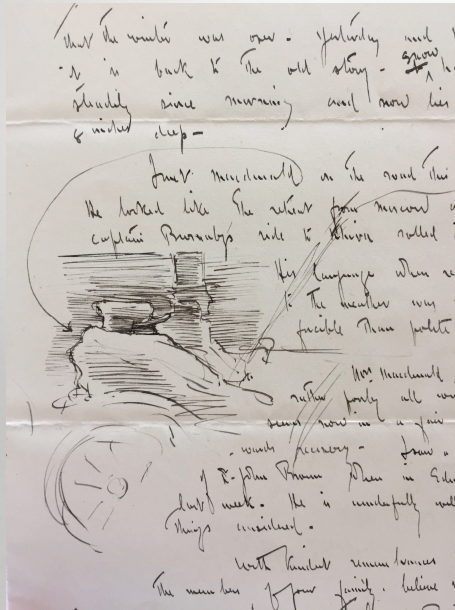 that the winter was over. Yesterday and
it is back to the old story. snow
steadily since morning and now lies
8 inches deep -
I met Macdonald on the road this
He looked like the retreat from Moscow
captain Burnaby's ride to Khiva rolled
His language when
to the weather was
forcible than polite
Mrs Macdonald
rather poorly all
seems now in a fair
-wards recovery. I saw a
of Dr John Brown when in
last week. He is wonderfully well
things considered.
With kindest remembrances
the members of your family. believe